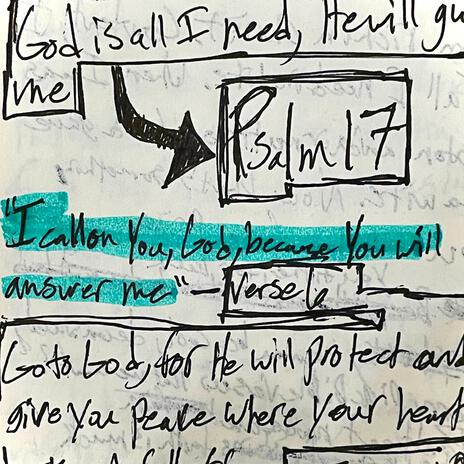 God is all I need, He will gu
me
Psalm 17
"I call on You, God, because You will
answer me" — Verse 6
Go to God, for He will protect and
give you peace where your heart